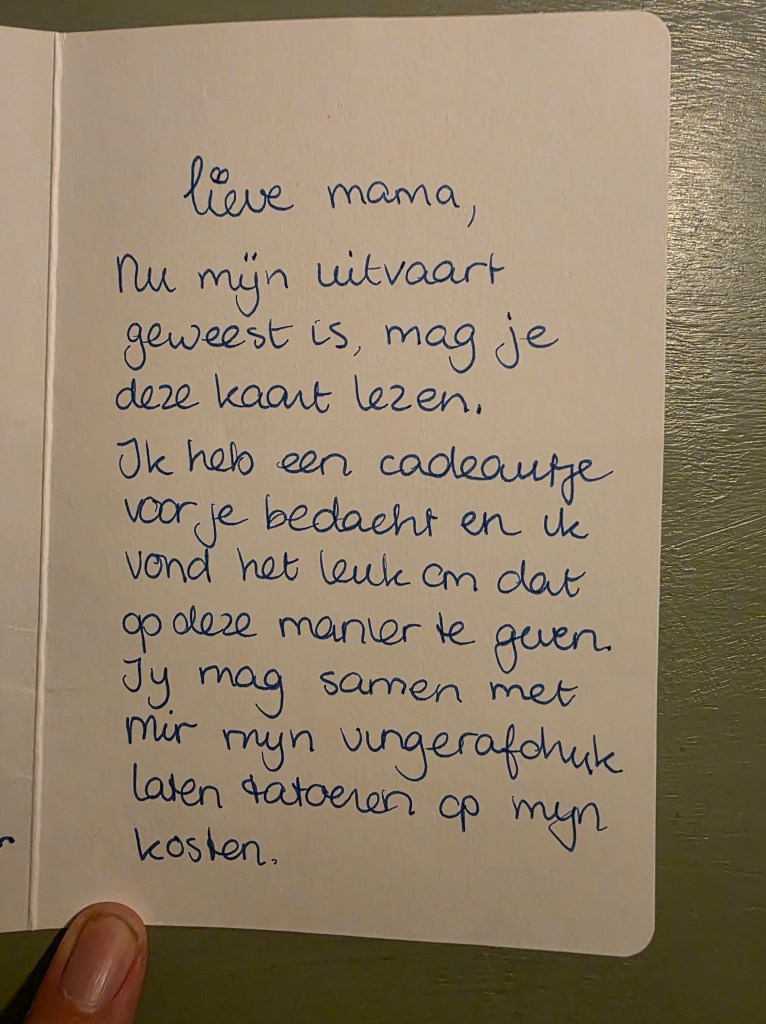 lieve mama,
Nu mijn uitvaart
geweest is, mag je
deze kaart lezen.
Ik heb een cadeautje
voor je bedacht en ik
vond het leuk om dat
op deze manier te geven.
Jij mag samen met
Mir mijn vingerafdruk
laten tatoeren op mijn
kosten.